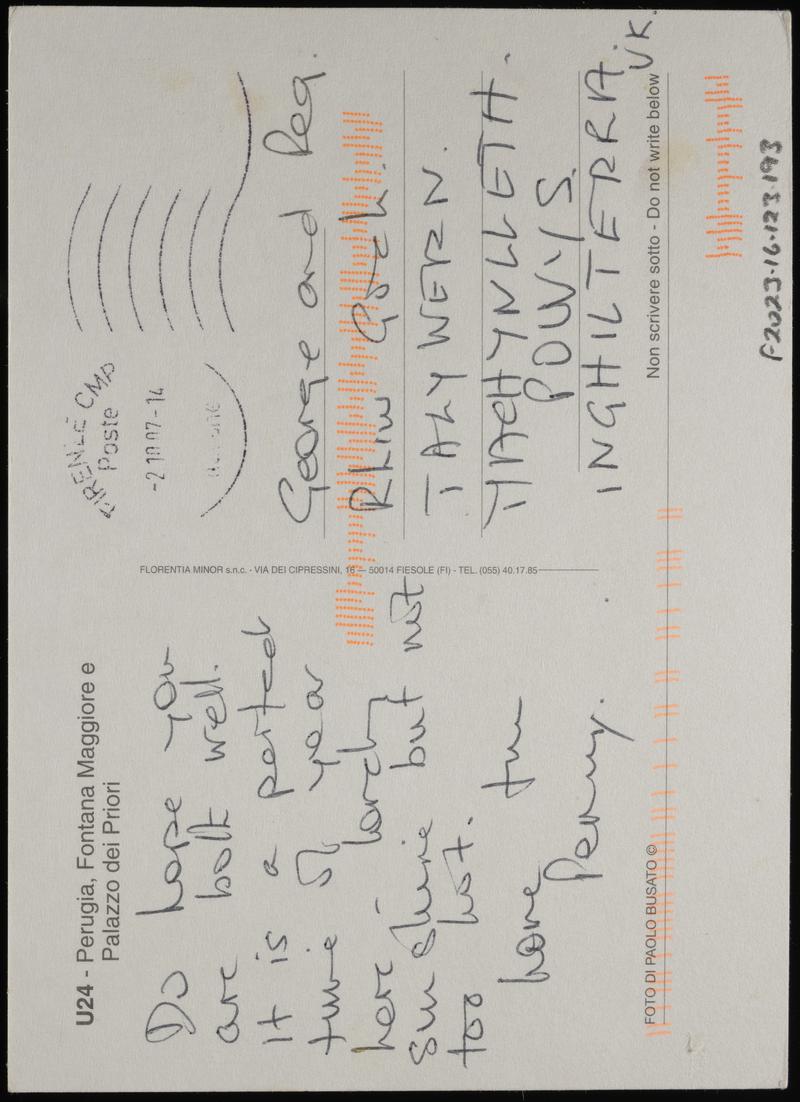 U24 - Perugia, Fontana Maggiore e
Palazzo dei Priori
Do hope you
are both well.
It is a perfect
time of year
here - lovely
sunshine but not
too hot.
love from
Penny.
FOTO DI PAOLO BUSATO ©
FLORENTIA MINOR s.n.c. - VIA DEI CIPRESSINI, 16 — 50014 FIESOLE (FI) - TEL. (055) 40.17.85
FIRENZE CMP
Poste
-2 10 97-14
George and Peg.
Rhiw Goch.
TALYWERN.
MACHYNLLETH.
POWYS.
INGHILTERRA.
U.K.
Non scrivere sotto - Do not write below
F2023.16.123.193